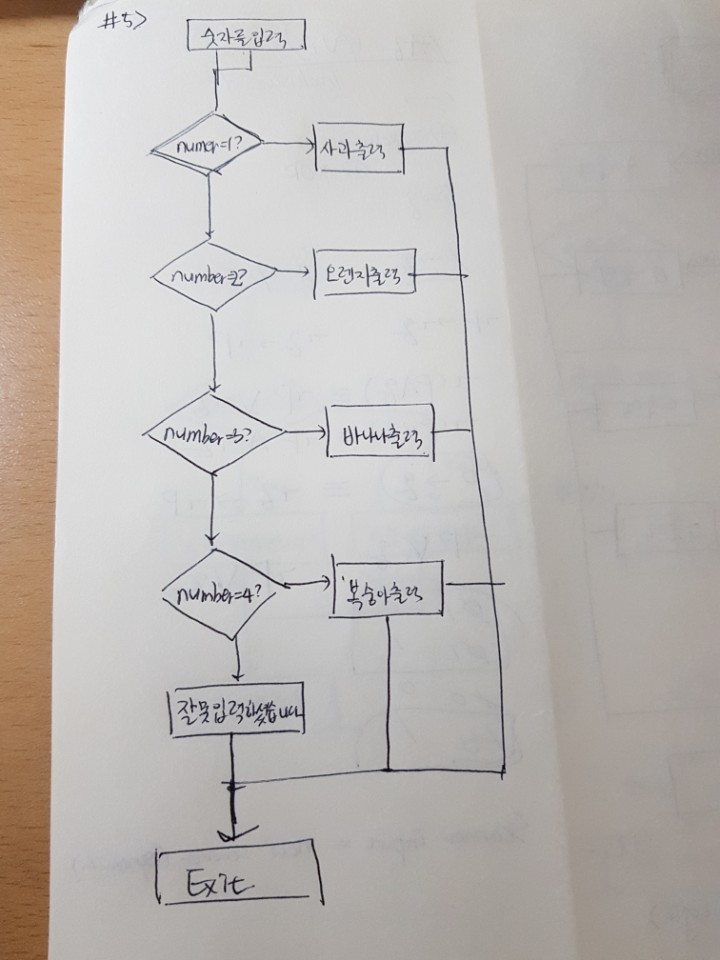 #5>
숫자를입력
numer=1?
사과출력
number=2?
오렌지출력
number=3?
바나나출력
number=4?
복숭아출력
잘못입력하셨습니다
Exit